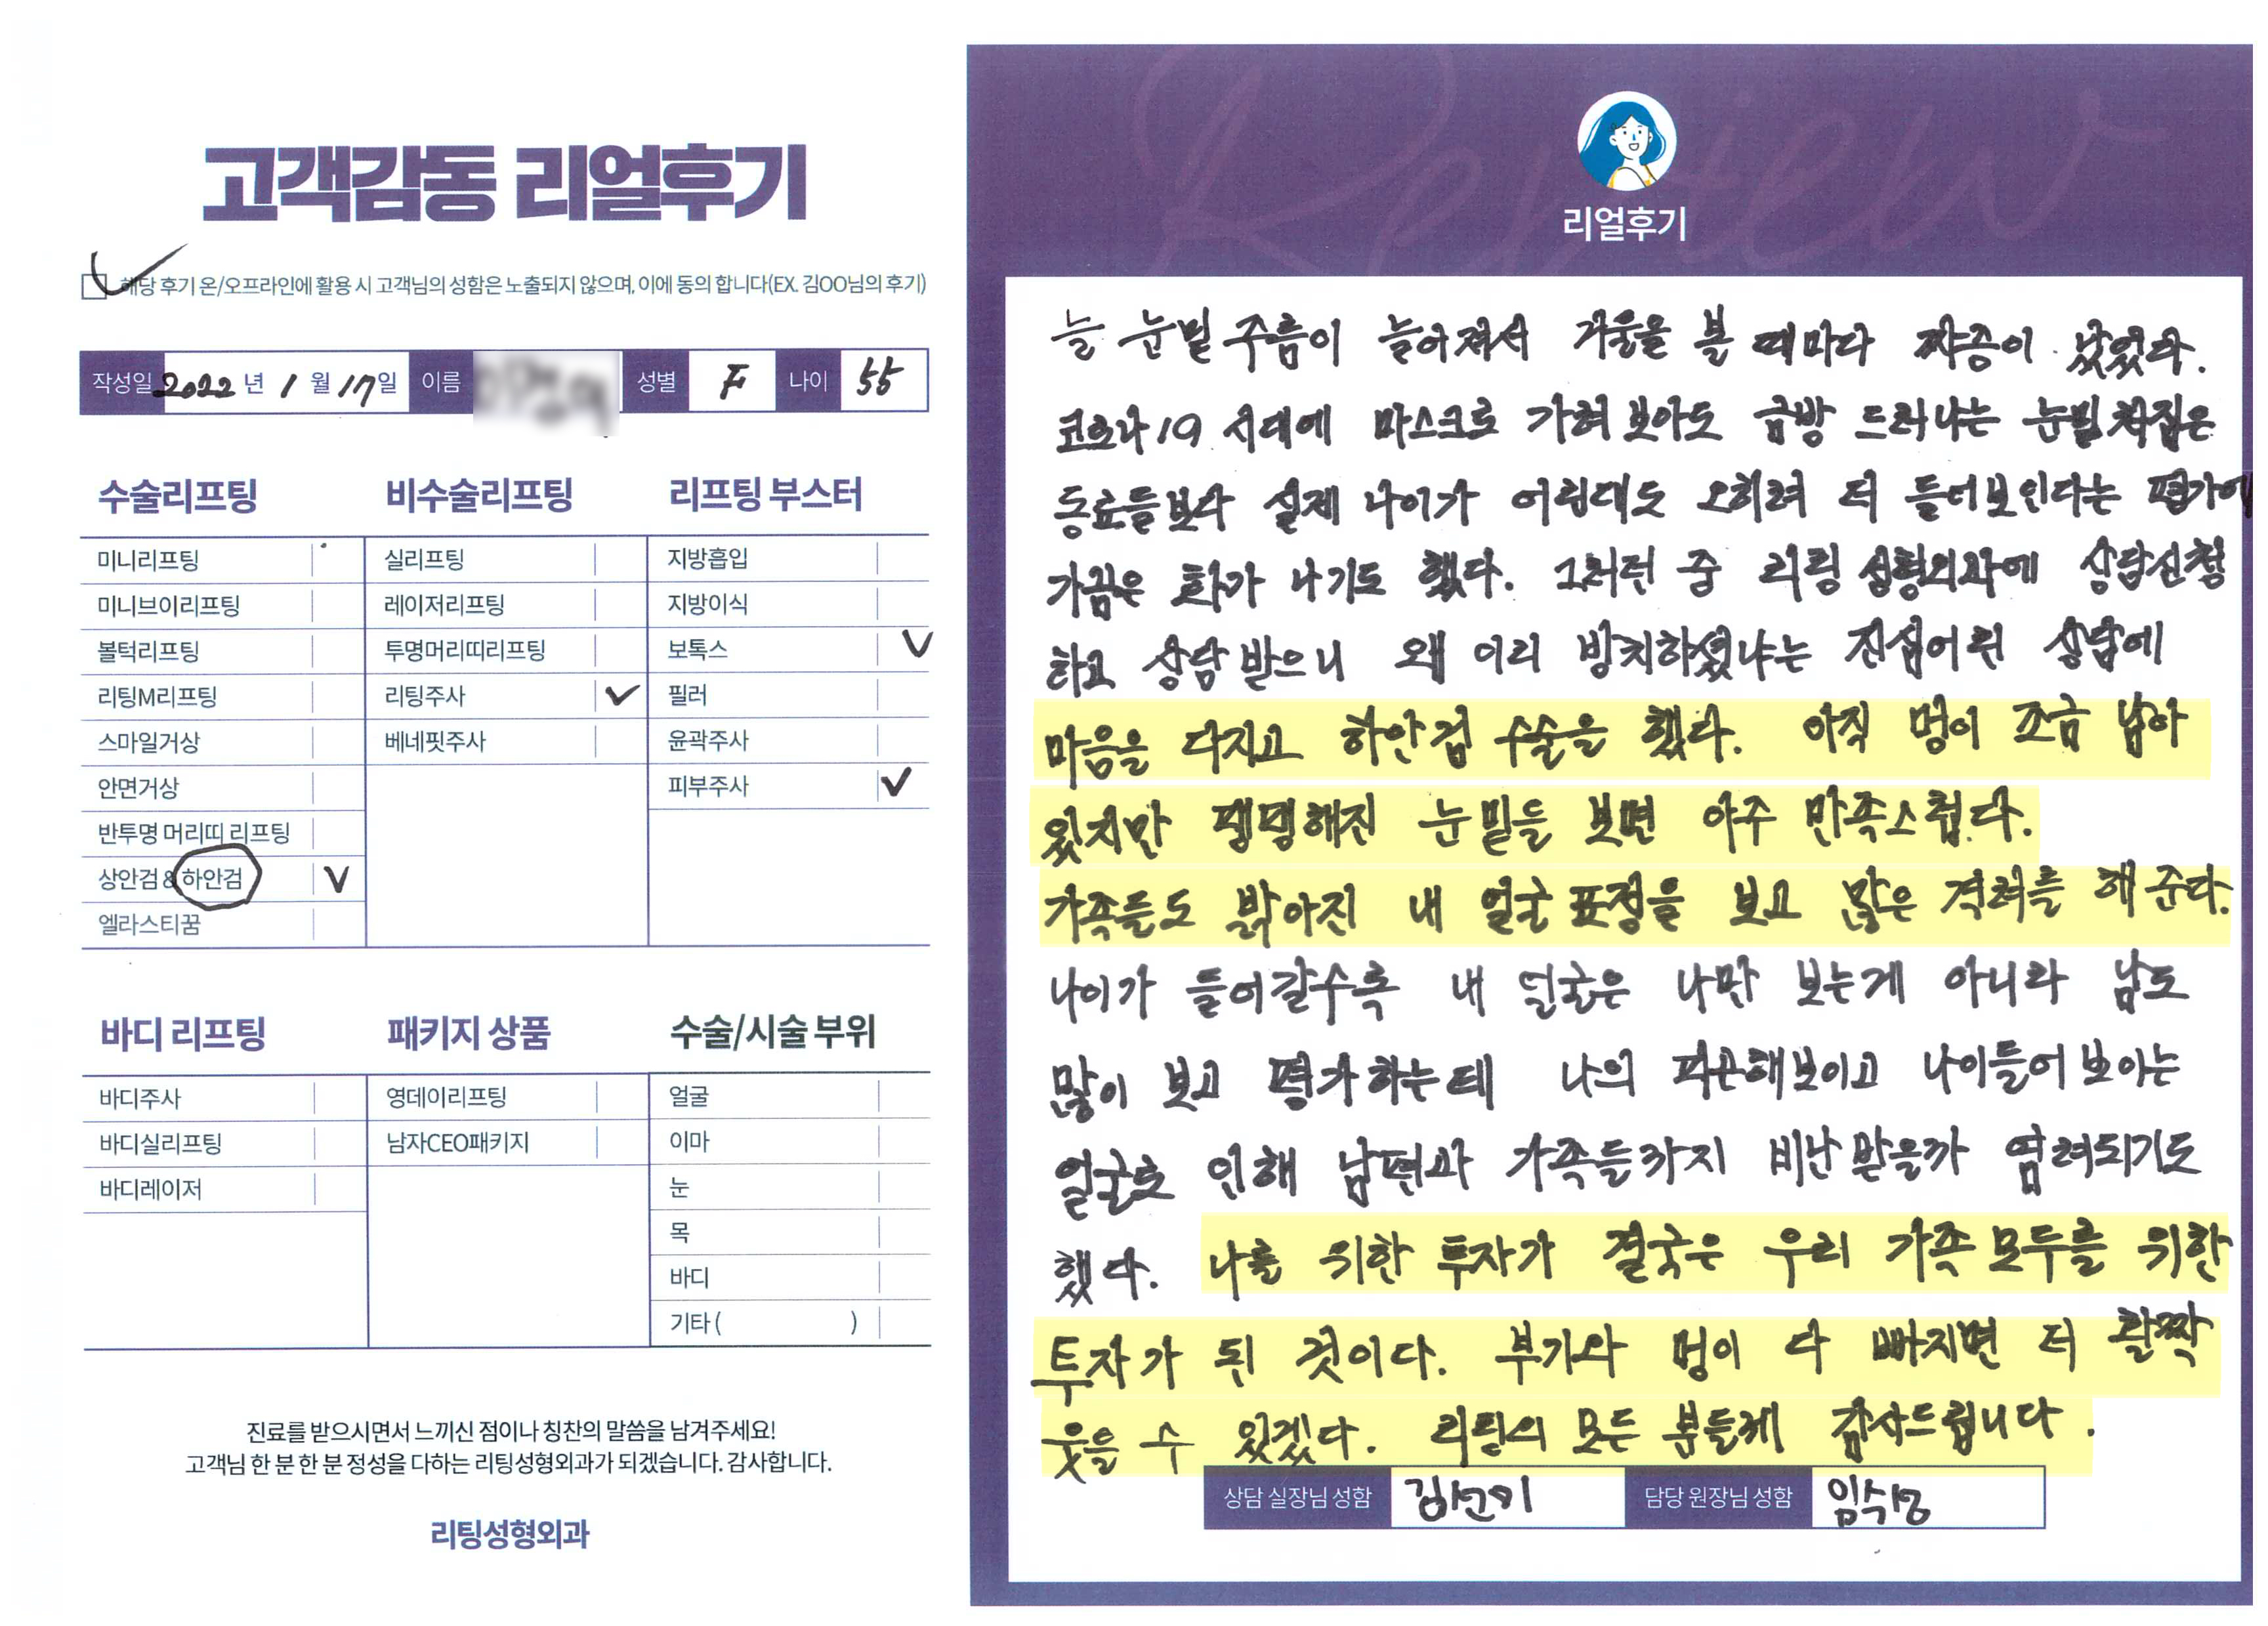 고객감동 리얼후기
해당 후기 온/오프라인에 활용 시 고객님의 성함은 노출되지 않으며, 이에 동의 합니다(EX. 김OO님의 후기)
작성일 2022 년 1 월 17일 이름 성별 F 나이 55
수술리프팅
미니리프팅
미니브이리프팅
볼턱리프팅
리팅M리프팅
스마일거상
안면거상
반투명 머리띠 리프팅
상안검 & 하안검 V
엘라스티꿈
비수술리프팅
실리프팅
레이저리프팅
투명머리띠리프팅
리팅주사 V
베네핏주사
리프팅 부스터
지방흡입
지방이식
보톡스 V
필러
윤곽주사
피부주사 V
바디 리프팅
바디주사
바디실리프팅
바디레이저
패키지 상품
영데이리프팅
남자CEO패키지
수술/시술 부위
얼굴
이마
눈
목
바디
기타 ( )
진료를 받으시면서 느끼신 점이나 칭찬의 말씀을 남겨주세요!
고객님 한 분 한 분 정성을 다하는 리팅성형외과가 되겠습니다. 감사합니다.
리팅성형외과
Review
리얼후기
늘 눈밑 주름이 늘어져서 거울을 볼 때마다 짜증이 났었다.
코로나19 시대에 마스크로 가려보아도 금방 드러나는 눈밑 처짐은
동료들보다 실제 나이가 어린데도 오히려 더 들어보인다는 평가에
가끔은 화가 나기도 했다. 그러던 중 리팅 성형외과에 상담신청
하고 상담 받으니 왜 이리 방치하셨냐는 진심어린 상담에
마음을 다지고 하안검 수술을 했다. 아직 멍이 조금 남아
있지만 팽팽해진 눈밑을 보면 아주 만족스럽다.
가족들도 밝아진 내 얼굴 표정을 보고 많은 격려를 해 준다.
나이가 들어갈수록 내 얼굴은 나만 보는게 아니라 남도
많이 보고 평가하는데 나의 피곤해보이고 나이들어 보이는
얼굴로 인해 남편과 가족들까지 비난 받을까 염려되기도
했다. 나를 위한 투자가 결국은 우리 가족 모두를 위한
투자가 된 것이다. 부기와 멍이 다 빠지면 더 활짝
웃을 수 있겠다. 리팅의 모든 분들께 감사드립니다.
상담 실장님 성함 김선미 담당 원장님 성함